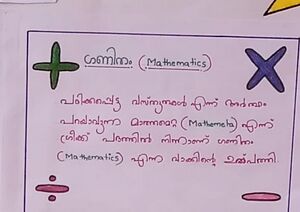 ഗണിതം (Mathematics)
പഠിക്കപ്പെട്ട വസ്തുതകൾ എന്ന് അർത്ഥം
പറയാവുന്ന മാത്തമെറ്റ (Mathemeta) എന്ന്
ഗ്രീക്ക് പദത്തിൽ നിന്നാണ് ഗണിതം
(Mathematics) എന്ന വാക്കിന്റെ ഉൽപത്തി.